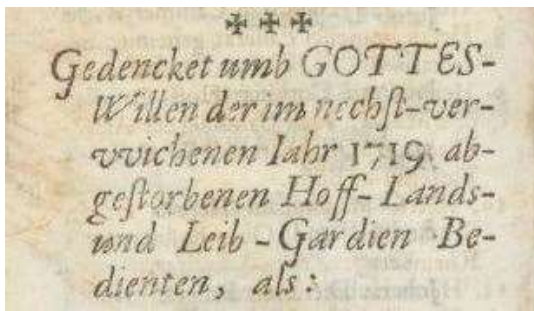 ✠ ✠ ✠
Gedencket umb GOTTES-
Willen der im nechſt-ver-
vvichenen Iahr 1719. ab-
geſtorbenen Hoff-Lands-
und Leib-Gardien Be-
dienten, als: